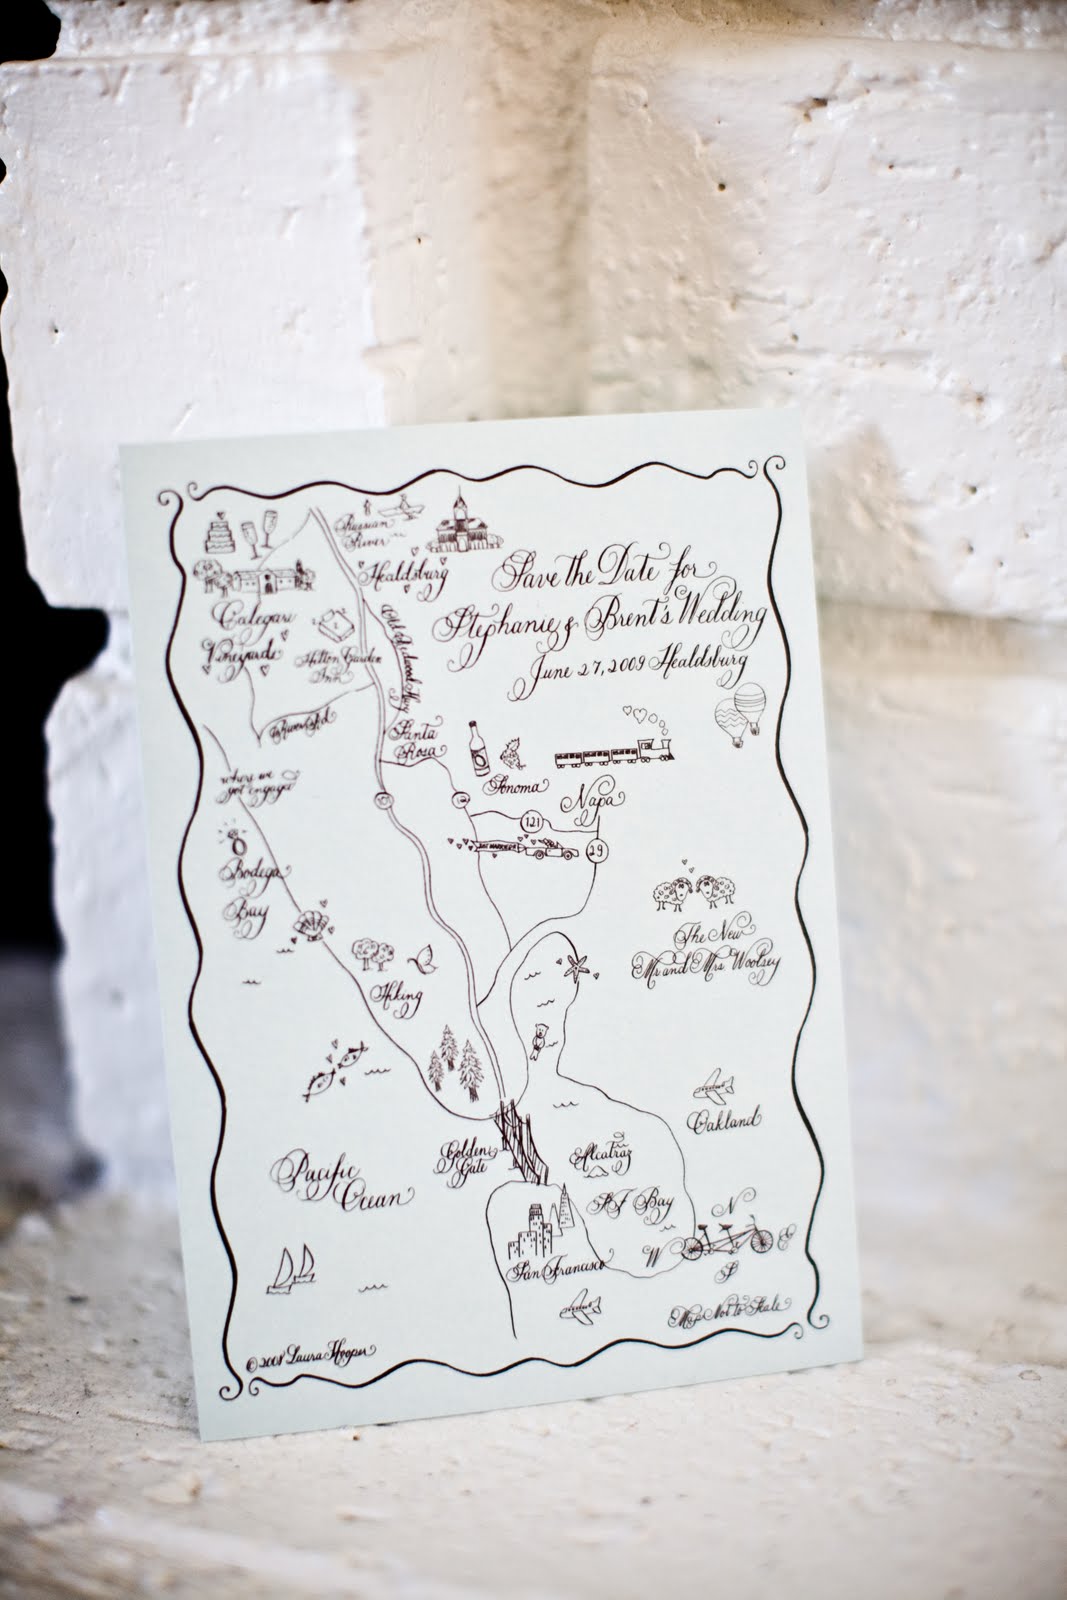 Russian
River
Healdsburg
Save the Date for
Stephanie & Brent's Wedding
June 27, 2009 Healdsburg
Calegari
Vineyards
Hilton Garden
Inn
Old Redwood Hwy
Santa
Rosa
where we
got engaged
Sonoma
Napa
121
29
Just Married
Bodega
Bay
Hiking
The New
Mr and Mrs Woolsey
Oakland
Golden
Gate
Alcatraz
Pacific
Ocean
SF Bay
San Francisco
N
W
E
S
Map Not to Scale
© 2008 Laura Hooper